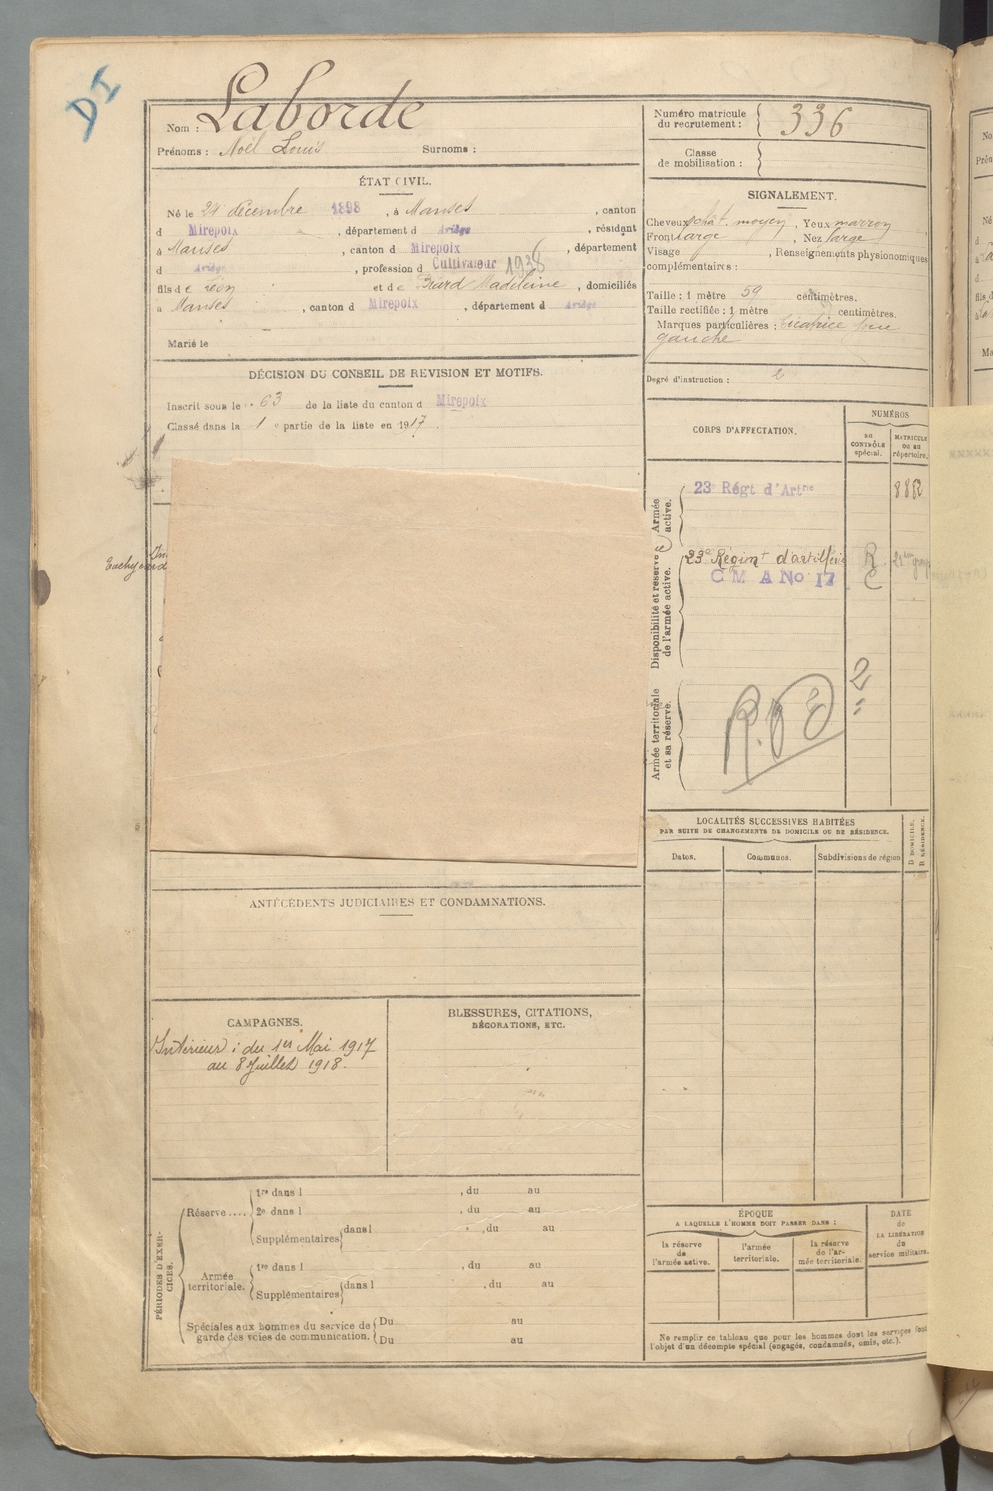 DI
Nom : Laborde
Prénoms : Noël Louis Surnoms :
Numéro matricule du recrutement : 336
Classe de mobilisation :
ÉTAT CIVIL.
Né le 24 décembre 1898, à Manses, canton
d Mirepoix, département d Ariège, résidant
à Manses, canton d Mirepoix, département
d Ariège, profession d Cultivateur 1938
fils de Léon et de Madeleine, domiciliés
à Manses, canton d Mirepoix, département d Ariège
Marié le
SIGNALEMENT.
Cheveux chât. moyen, Yeux marron
Front large, Nez large
Visage , Renseignements physionomiques
complémentaires :
Taille : 1 mètre 59 centimètres.
Taille rectifiée : 1 mètre centimètres.
Marques particulières : Cicatrice
gauche
Degré d'instruction : 2
DÉCISION DU CONSEIL DE REVISION ET MOTIFS.
Inscrit sous le 63 de la liste du canton d Mirepoix
Classé dans la 1e partie de la liste en 1917.
CORPS D'AFFECTATION.
NUMÉROS
AU CONTRÔLE spécial.
MATRICULE OU AU répertoire.
Armée active.
23e Régt d'Artrie
Disponibilité et réserve de l'armée active.
23e Régimt d'artillerie R
C M A No 17 C
Armée territoriale et sa réserve.
2
LOCALITÉS SUCCESSIVES HABITÉES
PAR SUITE DE CHANGEMENTS DE DOMICILE OU DE RÉSIDENCE.
Dates.
Communes.
Subdivisions de région.
D DOMICILE.
R RÉSIDENCE.
ANTÉCÉDENTS JUDICIAIRES ET CONDAMNATIONS.
CAMPAGNES.
Intérieur : du 1er Mai 1917
au 8 Juillet 1918.
BLESSURES, CITATIONS,
DÉCORATIONS, ETC.
PÉRIODES D'EXERCICES.
Réserve....
1re dans l , du au
2e dans l , du au
Supplémentaires dans l , du au
Armée territoriale.
1re dans l , du au
Supplémentaires dans l , du au
Spéciales aux hommes du service de garde des voies de communication.
Du au
Du au
ÉPOQUE
A LAQUELLE L'HOMME DOIT PASSER DANS :
la réserve de l'armée active.
l'armée territoriale.
la réserve de l'armée territoriale.
DATE de LA LIBÉRATION du service militaire.
Ne remplir ce tableau que pour les hommes dont les services font
l'objet d'un décompte spécial (engagés, condamnés, omis, etc.).